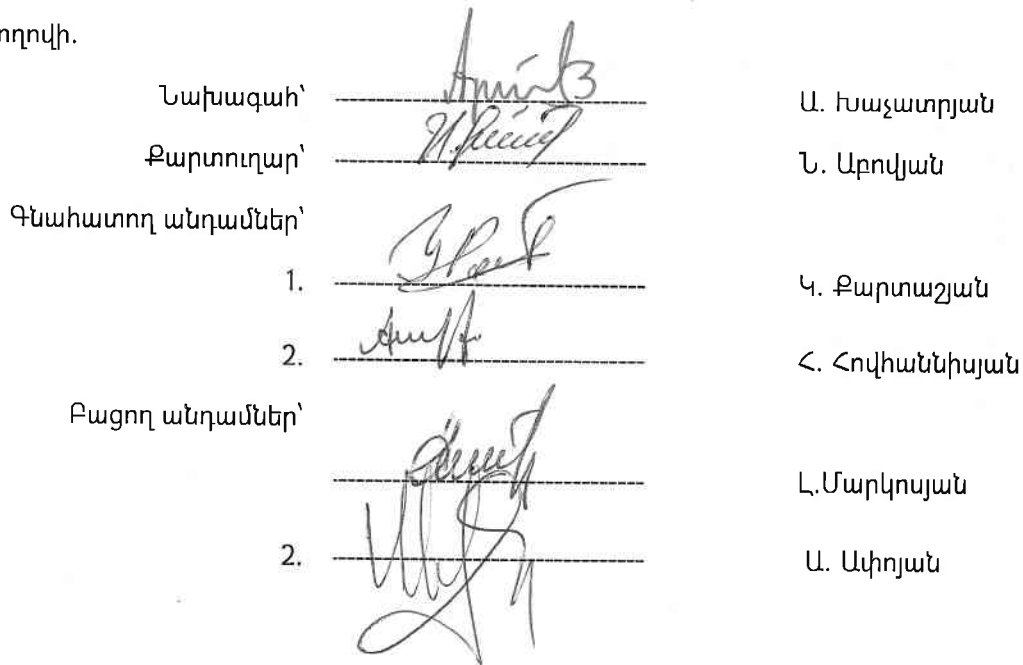 ողովի.
Նախագահ՝ Ա. Խաչատրյան
Քարտուղար՝ Ն. Աբովյան
Գնահատող անդամներ՝
1. Կ. Քարտաշյան
2. Հ. Հովհաննիսյան
Բացող անդամներ՝
Լ.Մարկոսյան
2. Ա. Ափոյան